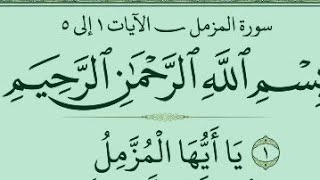 سورة المزمل ـ الآيات ١ إلى ٥
بِسْمِ اللَّهِ الرَّحْمَٰنِ الرَّحِيمِ
يَا أَيُّهَا الْمُزَّمِلُ ١